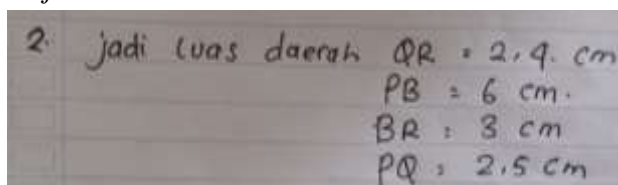 2. jadi luas daerah QR = 2,4. cm
PB = 6 cm.
BR = 3 cm
PQ = 2,5 cm